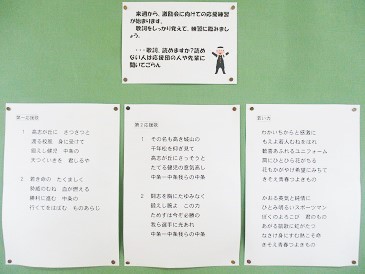 来週から、激励会に向けての応援練習
が始まります。
歌詞をしっかり覚えて、練習に臨みましょ
う。
・・・歌詞、読めますか?読め
ない人は応援団の人や先輩に
聞いてごらん
第一応援歌
1 高志が丘に さつさつと
渡る松風 身に受けて
鍛えし練児 中条の
天つくいきを 君しるや
2 若き命の たくましく
勝利に進む 中条の
行くてをはばむ ものあらじ
第二応援歌
1 その名も高き城山の
千年松を仰ぎ見て
高志が丘にさっそうと
たてる健児の意気高し
中条一中条我らの中条
2 闘志を胸にたゆみなく
鍛えし腕よ この力
ためすは今ぞ必勝の
我ら選手に光あれ
中条一中条我らの中条
若い力
わかいちからと感激に
もえよ若人むねをはれ
歓喜あふれるユニフォーム
肩にひとひら花がちる
花もかがやけ希望にみちて
きそえ青春つよきもの
かおる英気と純情に
ひとみ明るいスポーツマン
ぼくのよろこび 君のもの
あがる凱歌に虹がたつ
なさけ身にすむ熱こめて
きそえ青春つよきもの